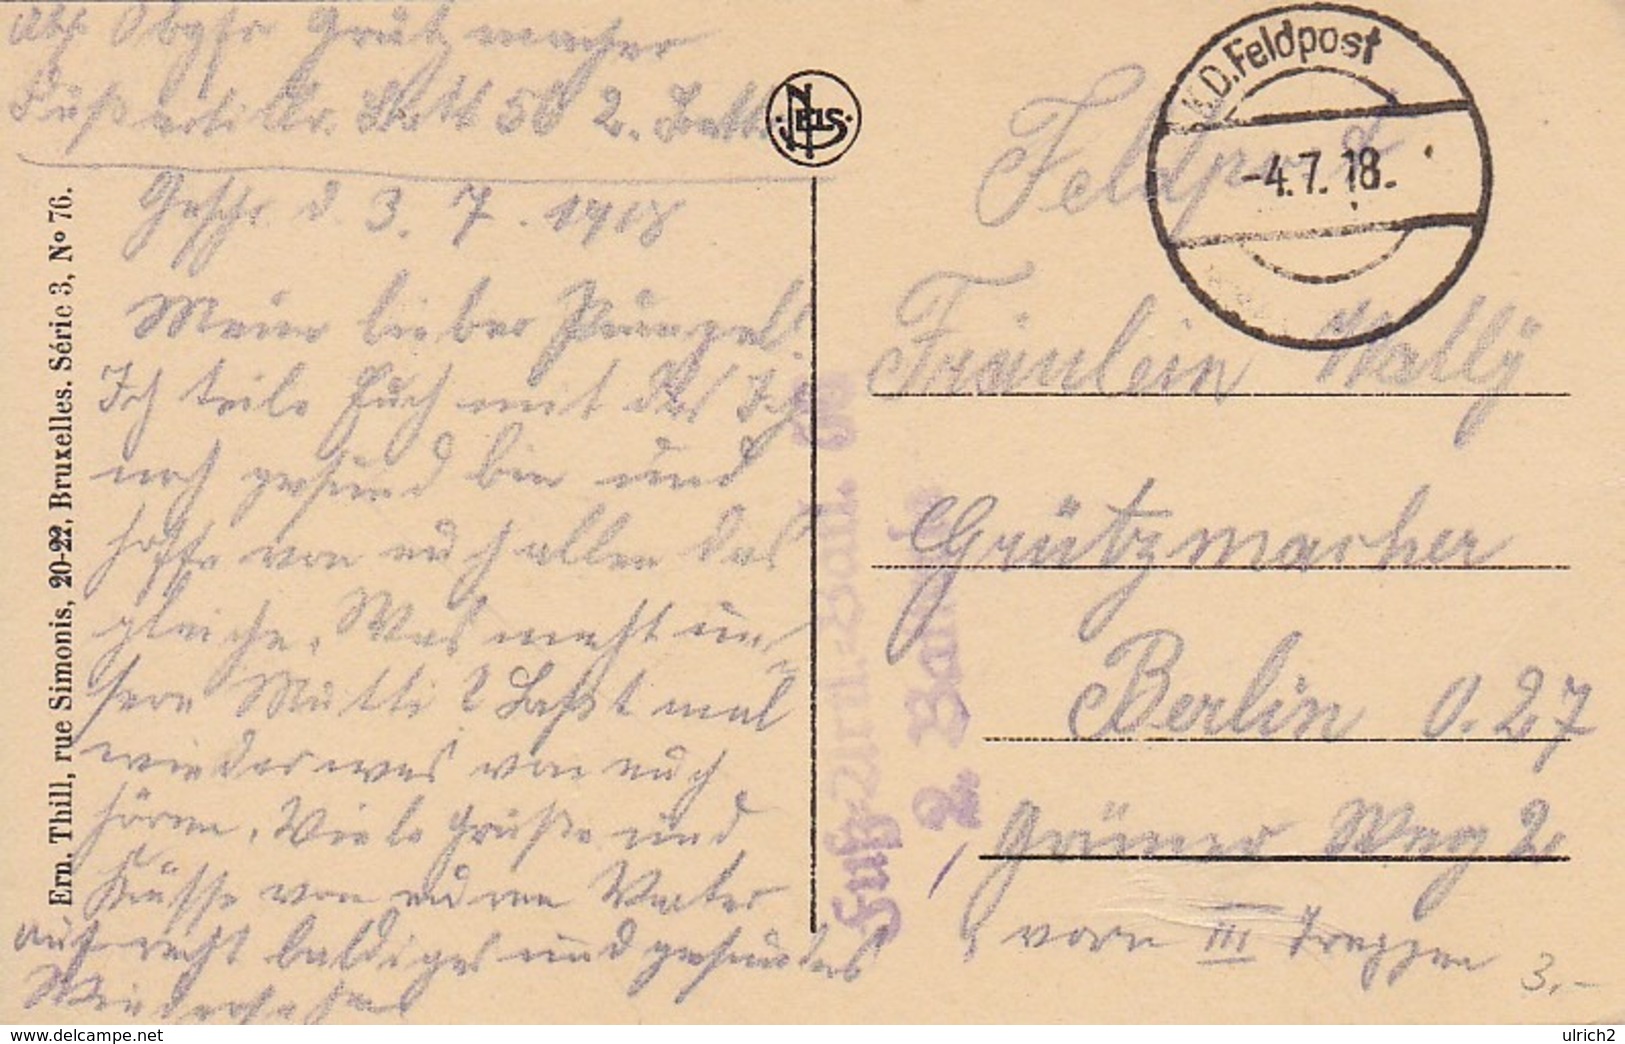 Abs. Obgfr Grützmacher
Fußartillr. Batt 58 2. Battr.
Geschr. d. 3. 7. 1918
Meine lieber Pünzel!
Ich teile Euch mit das Ich
noch gesund bin und
hoffe von euch allen das
gleiche. Was macht un-
sere Mutti? Laßt mal
wieder was von euch
hören. Viele Grüße und
Küsse von euren Vater
auf recht baldiges und gesundes
Wiedersehen
Ern. Thill, rue Simonis, 20-22, Bruxelles. Série 3, No 76.
NELS
K.D. Feldpost
-4.7.18.
Feldpost
Fräulein Wally
Grützmacher
Berlin O. 27
Grüner Weg 2
vorn III Treppen
Fuß-Artl.-Batl.
2. Batterie
3.-
www.delcampe.net
ulrich2